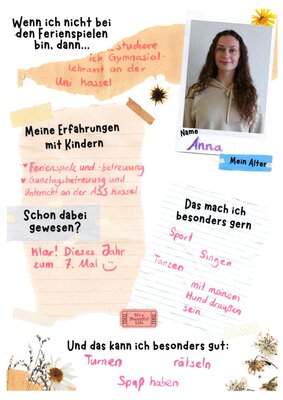 Wenn ich nicht bei
den Ferienspielen
bin, dann...
...studiere
ich Gymnasial-
Lehramt an der
Uni Kassel
Name
Anna
Mein Alter
Meine Erfahrungen
mit Kindern
♥ Ferienspiele und -betreuung
♥ Ganztagsbetreuung und
Unterricht an der ASS Kassel
Schon dabei
gewesen?
Klar! Dieses Jahr
zum 7. Mal ☺
Das mach ich
besonders gern
Sport
Singen
Tanzen
mit meinem
Hund draußen
sein
It's a
Beautiful
Life
Und das kann ich besonders gut:
Turnen
rätseln
Spaß haben